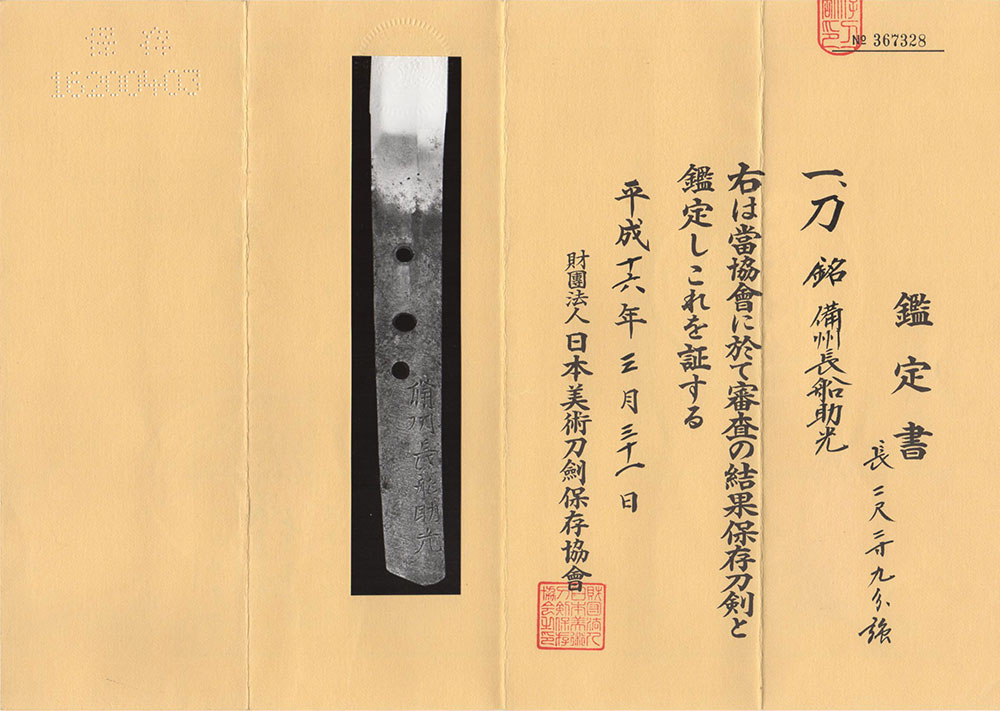 № 367328
鑑定書
一、刀 銘 備州長船助光
長 二尺三寸九分強
右は當協會に於て審査の結果保存刀剣と
鑑定しこれを証する
平成十六年三月三十一日
財團法人日本美術刀劍保存協會
財團法人
日本美術
刀剣保存
協会之印
備州長船助光
保存
16200403